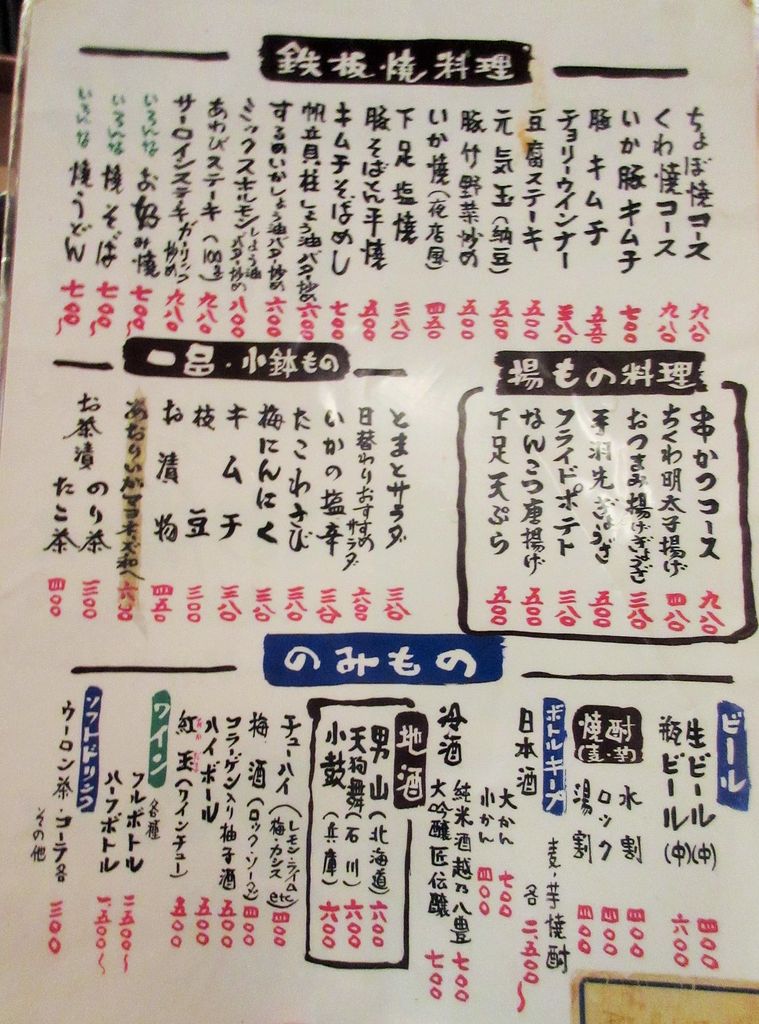 鉄板焼料理
ちょぼ焼コース 九八〇
くわ焼コース 九八〇
いか豚キムチ 七〇〇
豚キムチ 五五〇
チョリーウインナー 三八〇
豆腐ステーキ 五〇〇
元気玉(納豆) 五〇〇
豚竹野菜炒め 五〇〇
いか焼(夜店風) 四五〇
下足塩焼 三八〇
豚そばとん平焼 五〇〇
キムチそばめし 七〇〇
帆立貝柱しょう油バター炒め 六〇〇
するめいかしょう油バター炒め 六〇〇
ミックスホルモンしょう油バター炒め 八〇〇
あわびステーキ(100g) 九八〇
サーロインステーキガーリック炒め 九八〇
いろんなお好み焼 七〇〇〜
いろんな焼そば 七〇〇〜
いろんな焼うどん 七〇〇〜
揚もの料理
串かつコース 九八〇
ちくわ明太子揚げ 四八〇
おつまみ揚げぎょうざ 三八〇
手羽先ぎょうざ 五〇〇
フライドポテト 三八〇
なんこつ唐揚げ 五〇〇
下足天ぷら 五〇〇
一品・小鉢もの
とまとサラダ 三八〇
日替わりおすすめサラダ 六〇〇
いかの塩辛 三八〇
たこわさび 三八〇
梅にんにく 三八〇
キムチ 三八〇
枝豆 三〇〇
お漬物 四五〇
あおりいかマヨネーズ和へ 六〇〇
お茶漬 のり茶 三〇〇
たこ茶 四〇〇
のみもの
ビール
生ビール(中) 四〇〇
瓶ビール(中) 六〇〇
焼酎(麦・芋)
水割 四〇〇
ロック 四〇〇
湯割 四〇〇
ボトルキープ
麦・芋焼酎 各 二、五〇〇〜
日本酒
大かん 七〇〇
小かん 四〇〇
冷酒
純米酒越乃八豊 七〇〇
大吟醸匠伝醸 七〇〇
地酒
男山(北海道) 六〇〇
天狗舞(石川) 六〇〇
小鼓(兵庫) 六〇〇
チューハイ(レモン・ライム 梅・カシス etc) 四〇〇
梅酒(ロック・ソーダ) 四〇〇
コラーゲン入り柚子酒 五〇〇
ハイボール 五〇〇
紅玉(ワインチュー) 五〇〇
ワイン
各種
フルボトル 二五〇〇〜
ハーフボトル 一、五〇〇〜
ソフトドリンク
ウーロン茶・コーラ各 三〇〇
その他